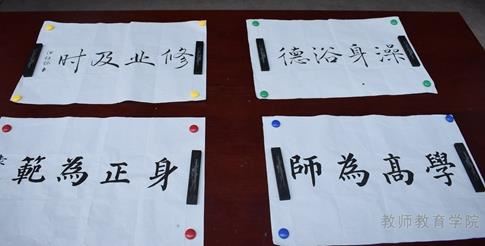 修业及时
澡身浴德
身正為範
學高為師
教师教育学院